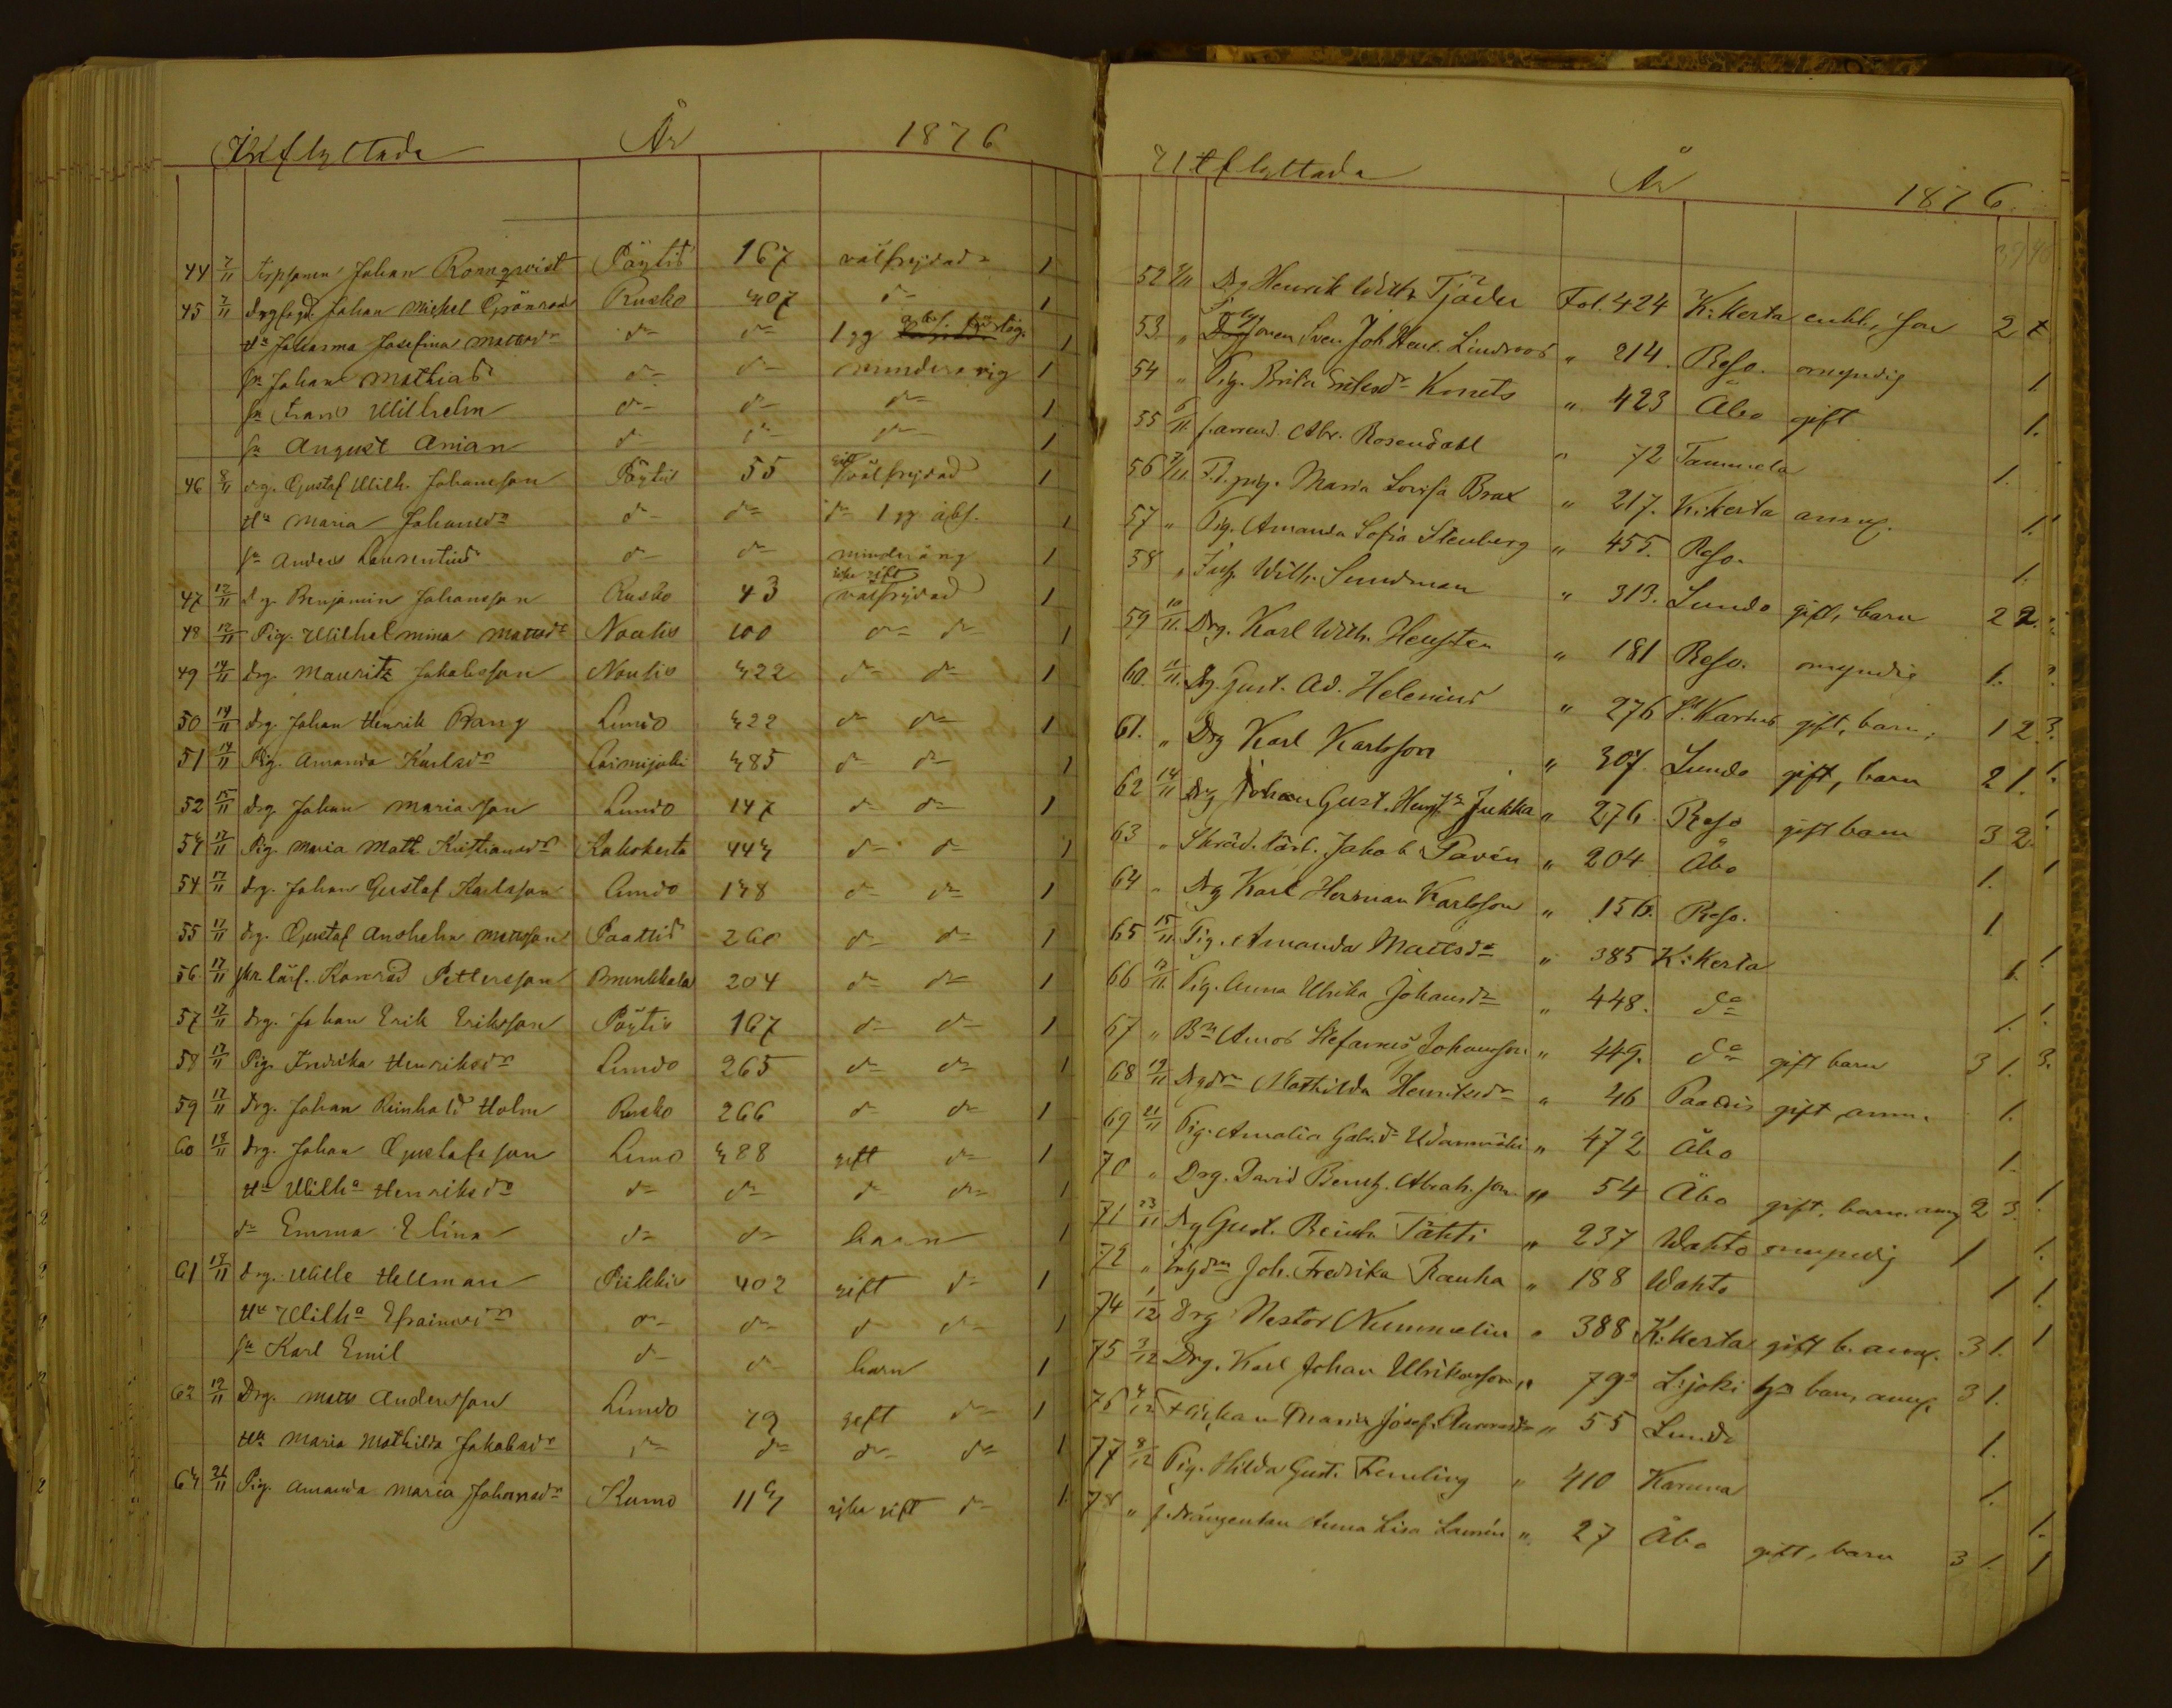 Inflyttade År 1876
44 7/11 Johan Rönnqvist Pöytis 167 välfrejdad 1
45 7/11 Johan Michel Grönroos Rusko 407 d:o 1
H:u Johanna Josefina Mattsd:r d:o d:o 1 gg 1
S:n Johan Mathias d:o d:o minderårig 1
S:n Frans Wilhelm d:o d:o d:o 1
S:n August Anian d:o d:o d:o 1
46 8/11 drg. Gustaf Wilh. Johansson Pöytis 55 gift välfrejdad 1
H:u Maria Johansd:r d:o d:o d:o 1 gg abs. 1
S:n Anders Laurentius d:o d:o minderårig 1
47 12/11 drg. Benjamin Johansson Rusko 43 icke gift välfrejdad 1
48 12/11 Pig. Wilhelmina Mattsd:r Nousis 100 d:o d:o 1
49 14/11 drg. Mauritz Jakobsson Nousis 422 d:o d:o 1
50 14/11 drg. Johan Henrik Rang Lundo 422 d:o d:o 1
51 14/11 Pig. Amanda Karlsd:r Loimijoki 485 d:o d:o 1
52 15/11 drg. Johan Mariasson Lundo 147 d:o d:o 1
54 17/11 Pig. Maria Math. Kristiansd:r Kakskerta 444 d:o d:o 1
54 17/11 drg. Johan Gustaf Karlsson Lundo 148 d:o d:o 1
55 17/11 drg. Gustaf Anshelm Mattsson Paattis 260 d:o d:o 1
56 17/11 skr. lärl. Konrad Pettersson Brunkkala 204 d:o d:o 1
57 17/11 drg. Johan Erik Eriksson Pöytis 167 d:o d:o 1
58 17/11 Pig. Fredrika Henriksd:r Lundo 265 d:o d:o 1
59 17/11 drg. Johan Reinhold Holm Rusko 266 d:o d:o 1
60 18/11 drg. Johan Gustafsson Lemo 488 gift d:o 1
H:u Wilh:a Henriksd:r d:o d:o d:o d:o 1
d:r Emma Elina d:o d:o barn 1
61 18/11 drg. Wille Hellman Piikkis 402 gift d:o 1
H:u Wilh:a Efraimsd:r d:o d:o d:o d:o 1
S:n Karl Emil d:o d:o barn 1
62 19/11 Drg. Matts Andersson Lundo 79 gift d:o 1
H:u Maria Mathilda Jakobsd:r d:o d:o d:o d:o 1
64 21/11 Pig. Amanda Maria Johansd:r Kumo 114 icke gift d:o 1
Utflyttade År 1876
52 2/11 Drg Henrik Wilh. Tjäder Fol. 424 K:kerta enkl., son 2 1
53. " Sven Joh. Henr. Lindroos " 214. Reso. omyndig 1
54 " Pig. Brita Eriksd:r Konets " 423 Åbo gift 1.
55 6/11 f. arrend. Abr. Rosendahl " 72 Tammela 1.
56 7/11 Maria Lovisa Brax " 217. K:kerta anm. 1.
57 " Pig. Amanda Sofia Stenberg " 455. Reso. 1.
58 " Insp. Wilh. Sundman " 313. Lundo gift, barn 2 2.
59 10/11 Drg. Karl Wilh. Hensten " 181 Reso. omyndig 1.
60. 11/11 Drg Gust. Ad. Helenius " 276 S:t Karins gift, barn, 1 2 3.
61. " Drg Karl Karlsson " 307. Lundo gift, barn 2 1. 1.
62 14/11 Drg Johan Gust. Jukka " 276. Reso gift barn 3 2.
63 " Skräd. lärl. Jakob Pavén " 204 Åbo 1.
64 " Drg Karl Herman Karlsson " 156. Reso. 1
65 15/11 Pig. Amanda Mattsd:r " 385 K:kerta 1.
66 17/11 Pig. Anna Ulrika Johansd:r " 448. d:o 1.
67 " Amos Stefanus Johansson " 449. d:o gift barn 3 1. 3.
68 19/11 Mathilda Henriksd:r " 46 Paattis gift, anm. 1.
69 21/11 Pig. Amalia Gabr.d:r " 472 Åbo 1.
70 " Drg. David Benj. Abrah.son " 54 Åbo gift, barn. anm 2 3.
71 23/11 Drg Gust. Reinh. Tähti " 237 Wahto omyndig 1
72 " Joh. Fredrika Rauha " 188 Wahto 1
74 1/12 Drg Nestor Nummelin " 388 K:kerta gift b. anm. 3 1.
75 3/12 Drg. Karl Johan Ulrikasson " 79 L:joki barn, anm. 3 1.
76 4/12 Maria Josef. " 55 Lundo 1.
77 8/12 Pig. Hilda Gust. Femling " 410 Karuna 1.
78 " f. drängenkan Anna Lisa Lamén " 27 Åbo gift, barn 3 1.